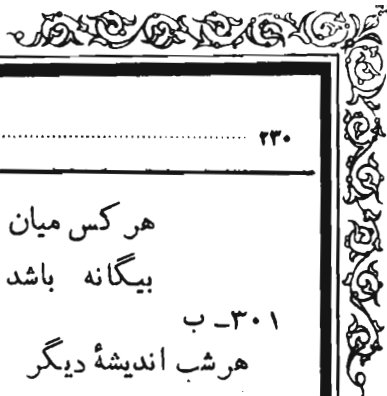 ۲۳۰ ........................................
هر کس میان
بیگانه باشد
۳۰۱ـ ب
هر شب اندیشهٔ دیگر